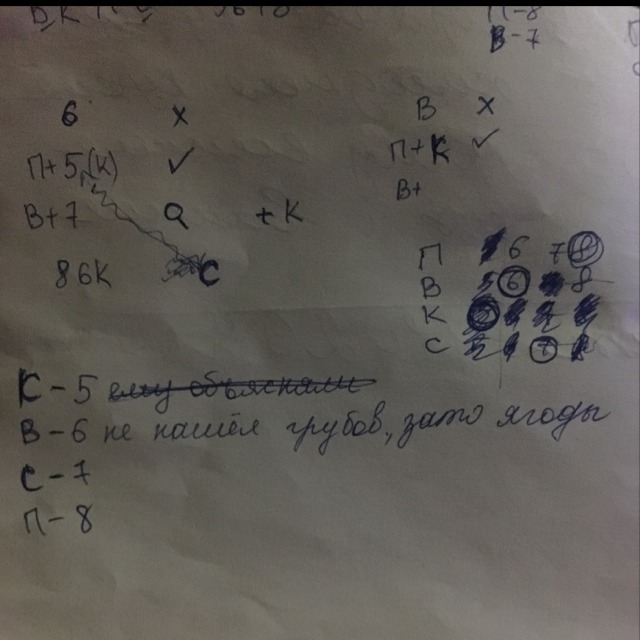 П-8
В-7
6 х
П+5(К) ✓
В+7 Q +К
86К С
В х
П+К ✓
В+
П 6 7 8
В 5 6 8
К
С 7
К-5 ему объясняли
В-6 не нашёл грубов, зато ягоды
С-7
П-8